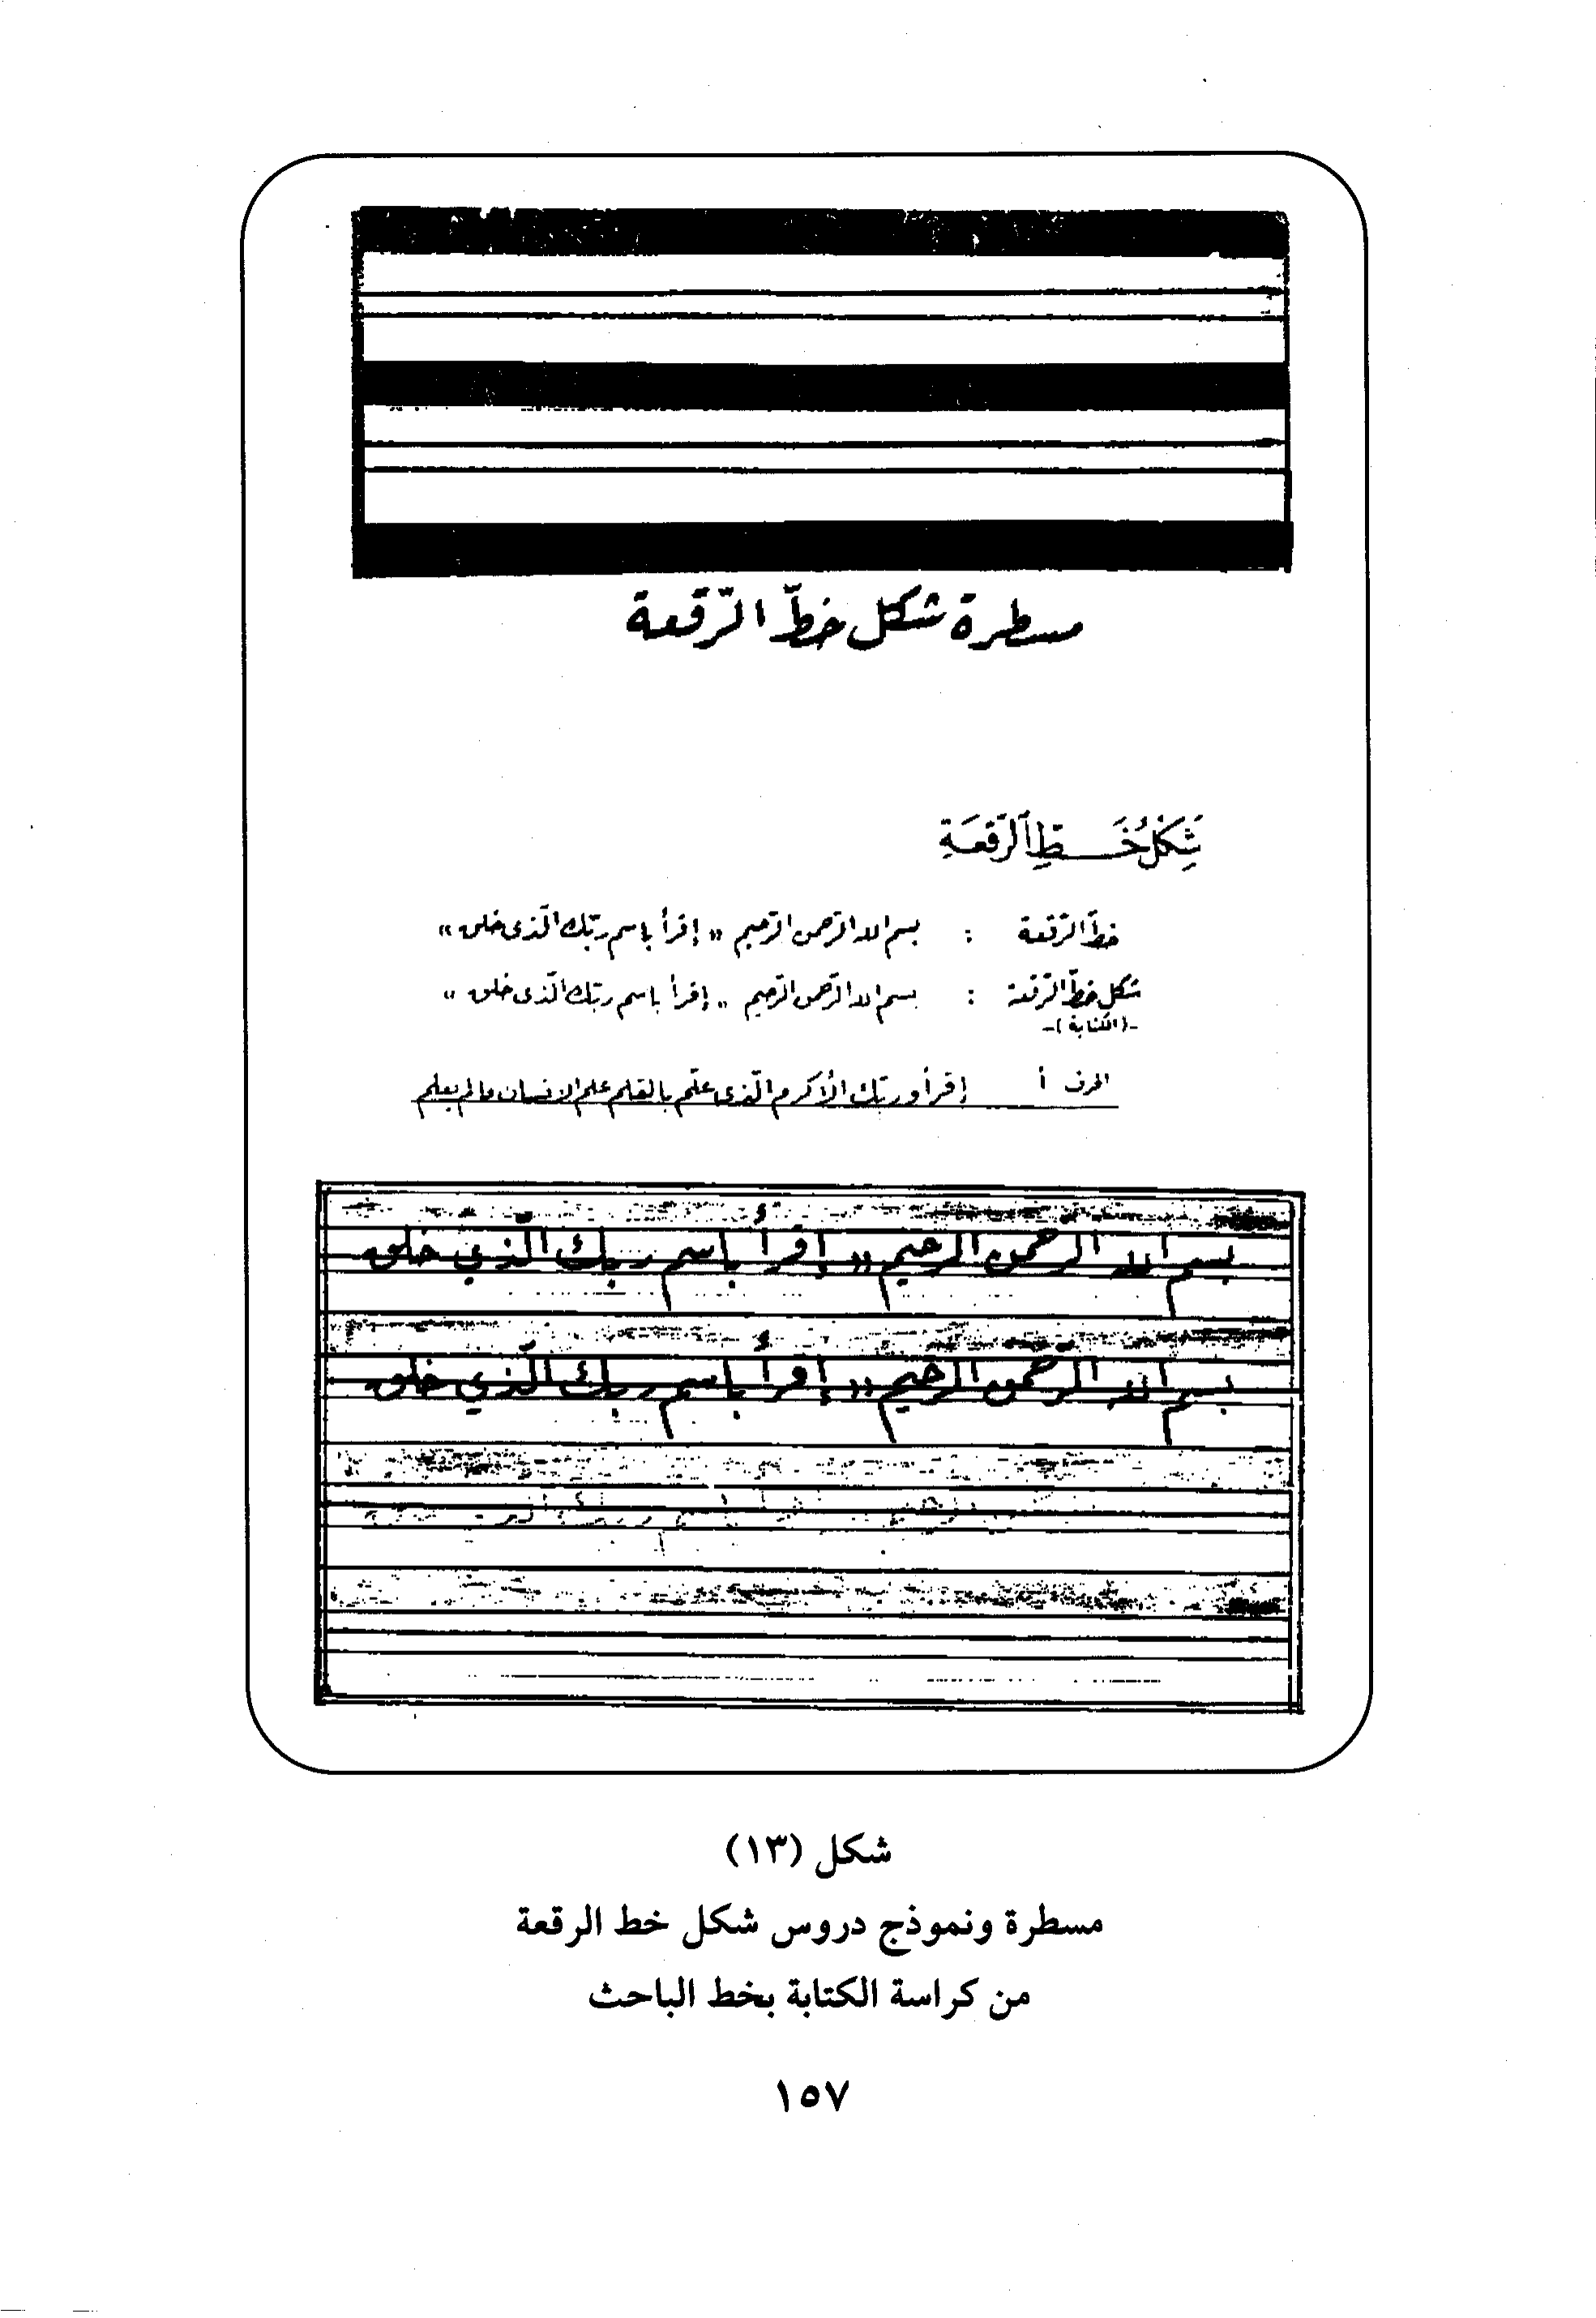 مسطرة شكل خطّ الرّقعة
شَكْلُ خَـطِّ الرّقعَة
خطّ الرّقعة : بسم الله الرّحمن الرّحيم « إقرأ باسم ربّك الّذى خلق »
شكل خطّ الرّقعة : بسم الله الرّحمن الرّحيم « إقرأ باسم ربّك الّذى خلق »
-(الكتابة)-
الحرف أ إقرأ وربّك الأكرم الّذى علّم بالقلم علم الانسان ما لم يعلم
بسم الله الرحمن الرحيم « إقرأ باسم ربك الّذي خلق
بسم الله الرّحمن الرحيم « إقرأ باسم ربك الّذي خلق
شكل (١٣)
مسطرة ونموذج دروس شكل خط الرقعة
من كراسة الكتابة بخط الباحث
١٥٧